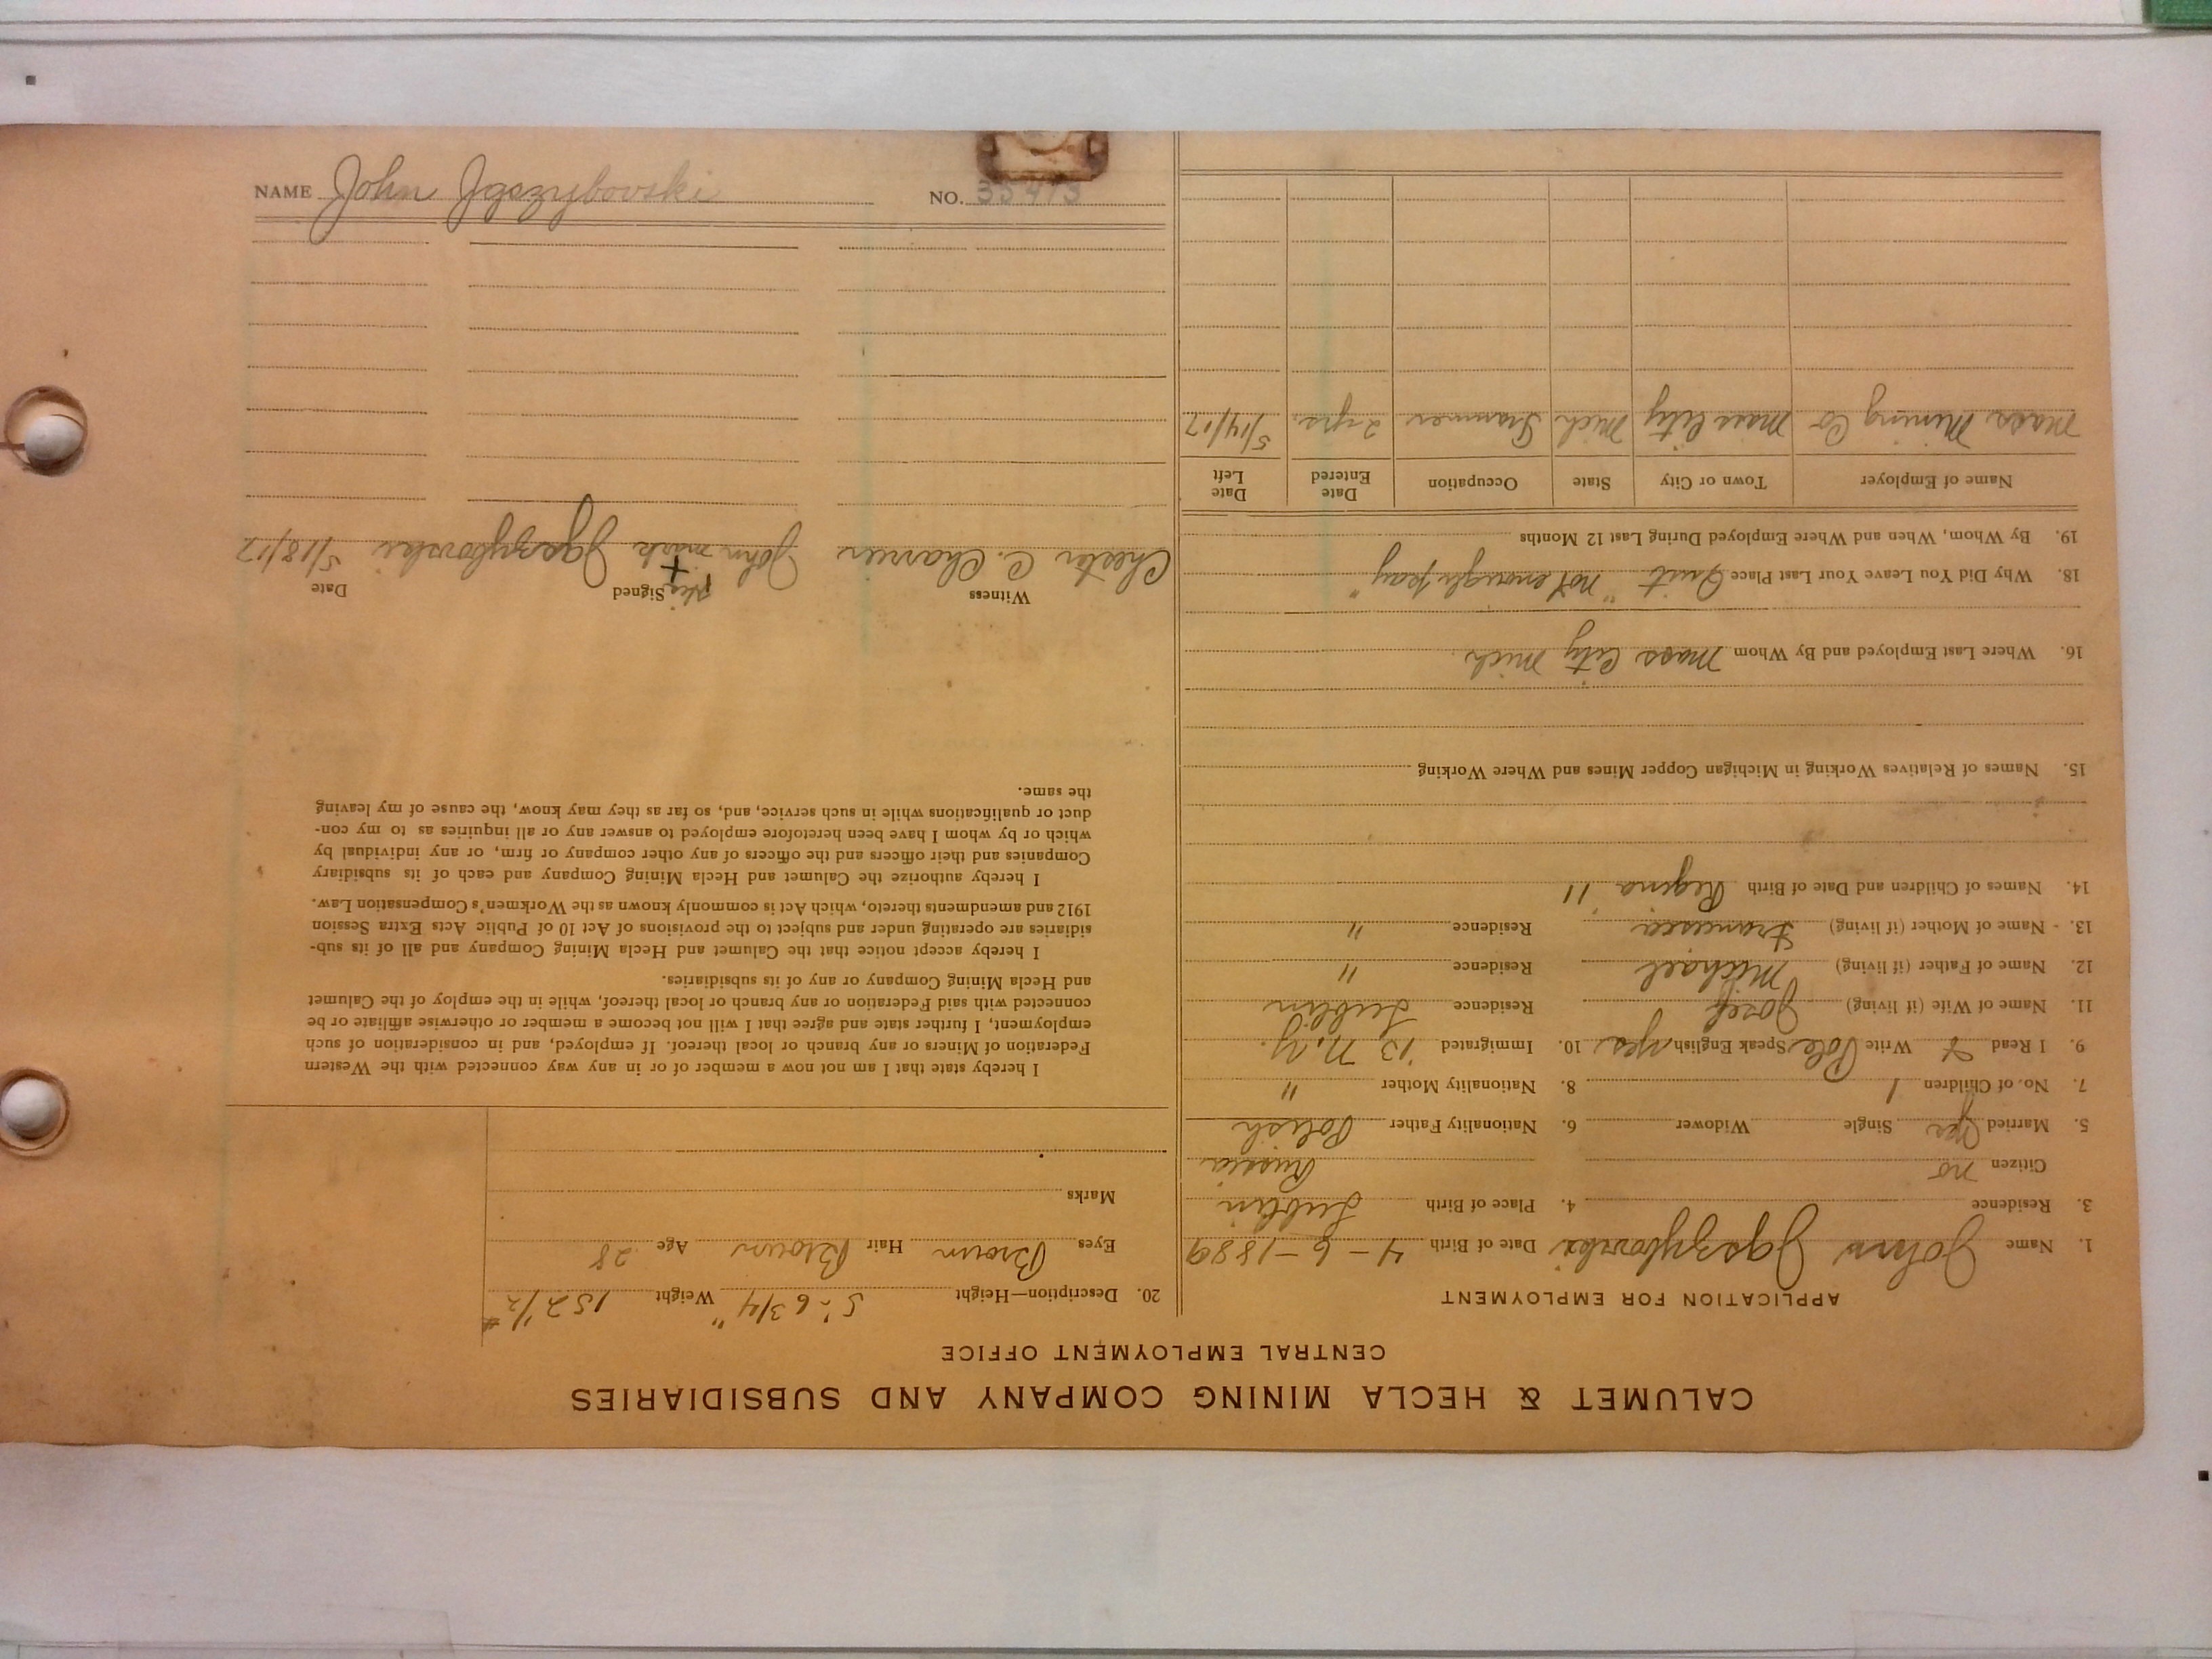 CALUMET & HECLA MINING COMPANY AND SUBSIDIARIES
CENTRAL EMPLOYMENT OFFICE
APPLICATION FOR EMPLOYMENT
1. Name John Jgszybovski Date of Birth 4-6-1889
3. Residence 4. Place of Birth Lublin
Citizen no Russia
5. Married Yes Single Widower 6. Nationality Father Polish
7. No. of Children 1 8. Nationality Mother "
9. I Read & Write Pole Speak English yes 10. Immigrated '13 N.Y.
11. Name of Wife (if living) Josef Residence Lublin
12. Name of Father (if living) Michael Residence "
13. Name of Mother (if living) Francisca Residence "
14. Names of Children and Date of Birth Regina 11
15. Names of Relatives Working in Michigan Copper Mines and Where Working
16. Where Last Employed and By Whom Mass City Mich.
18. Why Did You Leave Your Last Place Quit "not enough pay"
19. By Whom, When and Where Employed During Last 12 Months
Name of Employer Town or City State Occupation Date Entered Date Left
Mass Mining Co Mass City Mich Trammer 2 yrs. 5/14/17
20. Description—Height 5'-6 3/4" Weight 152 1/2 #
Eyes Brown Hair Brown Age 28
Marks
I hereby state that I am not now a member of or in any way connected with the Western
Federation of Miners or any branch or local thereof. If employed, and in consideration of such
employment, I further state and agree that I will not become a member or otherwise affiliate or be
connected with said Federation or any branch or local thereof, while in the employ of the Calumet
and Hecla Mining Company or any of its subsidiaries.
I hereby accept notice that the Calumet and Hecla Mining Company and all of its sub-
sidiaries are operating under and subject to the provisions of Act 10 of Public Acts Extra Session
1912 and amendments thereto, which Act is commonly known as the Workmen's Compensation Law.
I hereby authorize the Calumet and Hecla Mining Company and each of its subsidiary
Companies and their officers and the officers of any other company or firm, or any individual by
which or by whom I have been heretofore employed to answer any or all inquiries as to my con-
duct or qualifications while in such service, and, so far as they may know, the cause of my leaving
the same.
Witness Signed Date
his
Chester C. John + mark Jgszybovski 5/18/17
NAME John Jgszybovski NO. 35413